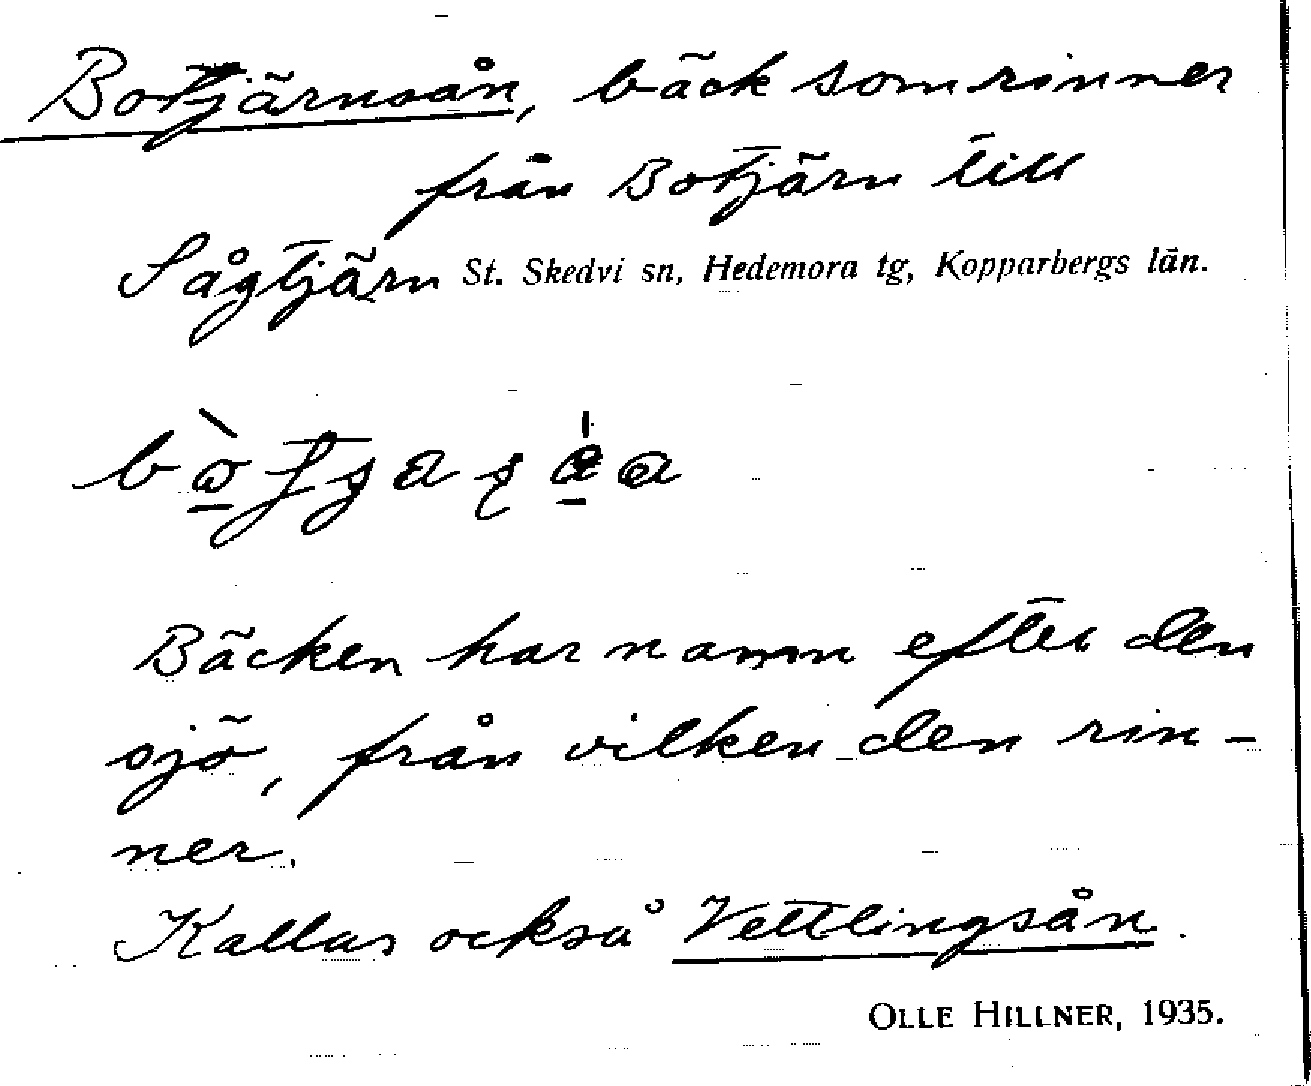 Botjärnsån, bäck som rinner
från Botjärn till
Sågtjärn St. Skedvi sn, Hedemora tg, Kopparbergs län.
Bäcken har namn efter den
sjö, från vilken den rin-
ner.
Kallas också Vettlingsån.
OLLE HILLNER, 1935.